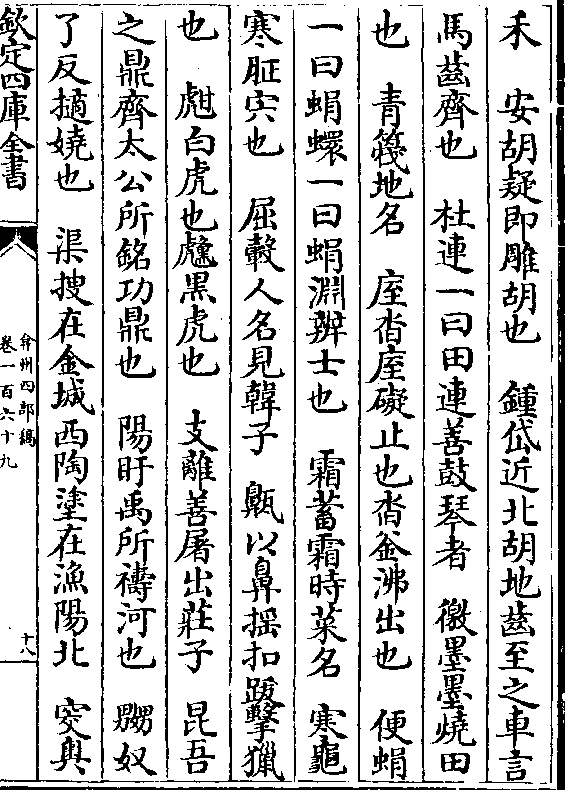 禾　安胡疑即雕胡也　鍾岱近北胡地齒至之車言
馬齒齊也　杜連一曰田連善鼓琴者　徽墨墨燒田
也　青篾地名　庢沓庢礙止也沓釜沸出也　便蜎
一曰蜎蠉一曰蜎淵辨士也　霜蓄霜時菜名　寒龜
寒胵宍也　屈轂人名見韓子　䶎以鼻搖扣跋擊獵
也　甝白虎也虪黑虎也　支離善屠出莊子　昆吾
之鼎齊太公所銘功鼎也　陽盱禹所禱河也　嬲奴
了反擿嬈也　渠搜在金城西陶塗在漁陽北　窔與
欽定四庫全書
弇州四部稿
卷一百六十九
十八